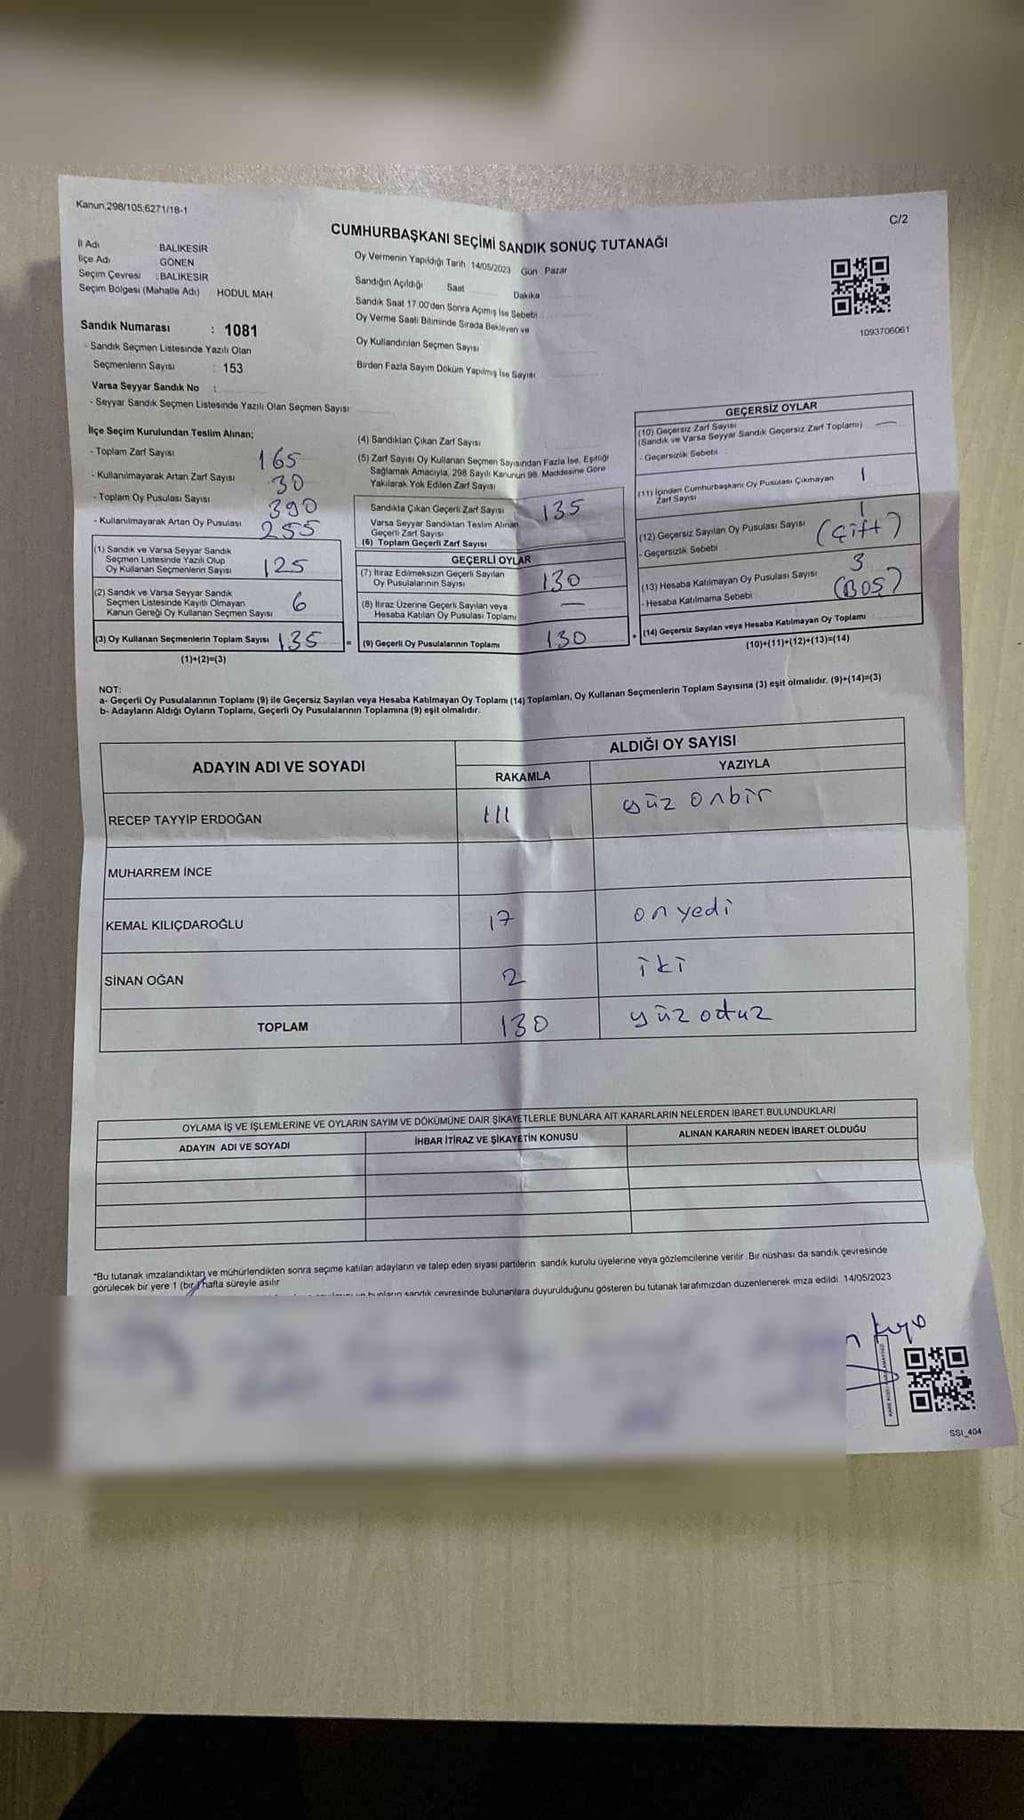 Kanun;298/105;6271/18-1
C/2
CUMHURBAŞKANI SEÇİMİ SANDIK SONUÇ TUTANAĞI
İl Adı BALIKESİR
İlçe Adı GÖNEN
Seçim Çevresi : BALIKESİR
Seçim Bölgesi (Mahalle Adı) HODUL MAH
Oy Vermenin Yapıldığı Tarih :14/05/2023 Gün : Pazar
Sandığın Açıldığı Saat Dakika
Sandık Saat 17.00'den Sonra Açımış İse Sebebi
Oy Verme Saati Bitiminde Sırada Bekleyen ve
Oy Kullandırılan Seçmen Sayısı
Birden Fazla Sayım Döküm Yapılmış İse Sayısı
1093706061
Sandık Numarası : 1081
- Sandık Seçmen Listesinde Yazılı Olan
Seçmenlerin Sayısı : 153
Varsa Seyyar Sandık No :
- Seyyar Sandık Seçmen Listesinde Yazılı Olan Seçmen Sayısı
İlçe Seçim Kurulundan Teslim Alınan;
- Toplam Zarf Sayısı 165
- Kullanılmayarak Artan Zarf Sayısı 30
- Toplam Oy Pusulası Sayısı 390
- Kullanılmayarak Artan Oy Pusulası 255
(1) Sandık ve Varsa Seyyar Sandık
Seçmen Listesinde Yazılı Olup
Oy Kullanan Seçmenlerin Sayısı 125
(2) Sandık ve Varsa Seyyar Sandık
Seçmen Listesinde Kayıtlı Olmayan
Kanun Gereği Oy Kullanan Seçmen Sayısı 6
(3) Oy Kullanan Seçmenlerin Toplam Sayısı 135 =
(1)+(2)=(3)
(4) Sandıktan Çıkan Zarf Sayısı
(5) Zarf Sayısı Oy Kullanan Seçmen Sayısından Fazla İse, Eşitliği
Sağlamak Amacıyla, 298 Sayılı Kanunun 98. Maddesine Göre
Yakılarak Yok Edilen Zarf Sayısı
Sandıkta Çıkan Geçerli Zarf Sayısı 135
Varsa Seyyar Sandıktan Teslim Alınan
Geçerli Zarf Sayısı
(6) Toplam Geçerli Zarf Sayısı
GEÇERLİ OYLAR
(7) İtiraz Edilmeksizin Geçerli Sayılan
Oy Pusulalarının Sayısı 130
(8) İtiraz Üzerine Geçerli Sayılan veya
Hesaba Katılan Oy Pusulası Toplamı —
(9) Geçerli Oy Pusulalarının Toplamı 130 +
GEÇERSİZ OYLAR
(10) Geçersiz Zarf Sayısı
(Sandık ve Varsa Seyyar Sandık Geçersiz Zarf Toplamı) —
- Geçersizlik Sebebi
(11) İçinden Cumhurbaşkanı Oy Pusulası Çıkmayan 1
Zarf Sayısı
(12) Geçersiz Sayılan Oy Pusulası Sayısı 1
- Geçersizlik Sebebi (Çift)
(13) Hesaba Katılmayan Oy Pusulası Sayısı 3
- Hesaba Katılmama Sebebi (BOŞ)
(14) Geçersiz Sayılan veya Hesaba Katılmayan Oy Toplamı
(10)+(11)+(12)+(13)=(14)
NOT:
a- Geçerli Oy Pusulalarının Toplamı (9) ile Geçersiz Sayılan veya Hesaba Katılmayan Oy Toplamı (14) Toplamları, Oy Kullanan Seçmenlerin Toplam Sayısına (3) eşit olmalıdır. (9)+(14)=(3)
b- Adayların Aldığı Oyların Toplamı, Geçerli Oy Pusulalarının Toplamına (9) eşit olmalıdır.
ADAYIN ADI VE SOYADI
ALDIĞI OY SAYISI
RAKAMLA YAZIYLA
RECEP TAYYİP ERDOĞAN 111 yüz onbir
MUHARREM İNCE
KEMAL KILIÇDAROĞLU 17 onyedi
SİNAN OĞAN 2 iki
TOPLAM 130 yüz otuz
OYLAMA İŞ VE İŞLEMLERİNE VE OYLARIN SAYIM VE DÖKÜMÜNE DAİR ŞİKAYETLERLE BUNLARA AİT KARARLARIN NELERDEN İBARET BULUNDUKLARI
ADAYIN ADI VE SOYADI İHBAR İTİRAZ VE ŞİKAYETİN KONUSU ALINAN KARARIN NEDEN İBARET OLDUĞU
*Bu tutanak imzalandıktan ve mühürlendikten sonra seçime katılan adayların ve talep eden siyasi partilerin sandık kurulu üyelerine veya gözlemcilerine verilir. Bir nüshası da sandık çevresinde
görülecek bir yere 1 (bir) hafta süreyle asılır
bunların sandık çevresinde bulunanlara duyurulduğunu gösteren bu tutanak tarafımızdan düzenlenerek imza edildi. 14/05/2023
SSI_404